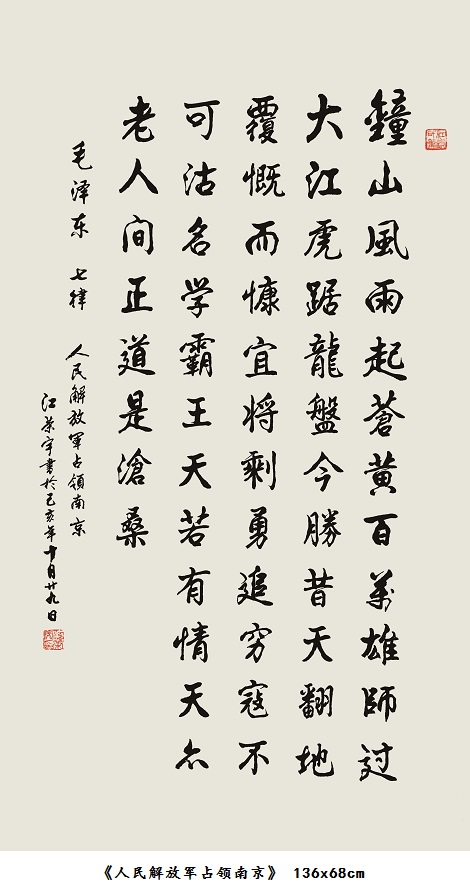 鐘山風雨起蒼黄百萬雄師过
大江虎踞龍盤今勝昔天翻地
覆慨而慷宜将剩勇追穷寇不
可沽名学霸王天若有情天亦
老人间正道是滄桑
毛泽东 七律 人民解放军占领南京
江宇书於己亥年十月廿九日
《人民解放军占领南京》 136x68cm